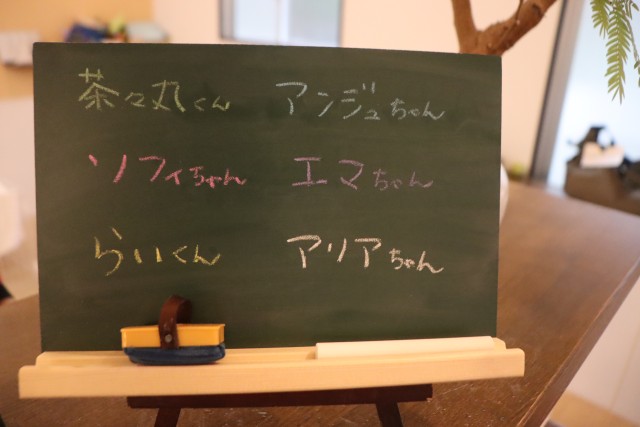 茶々丸くん アンジュちゃん
ソフィちゃん エマちゃん
らいくん アリアちゃん